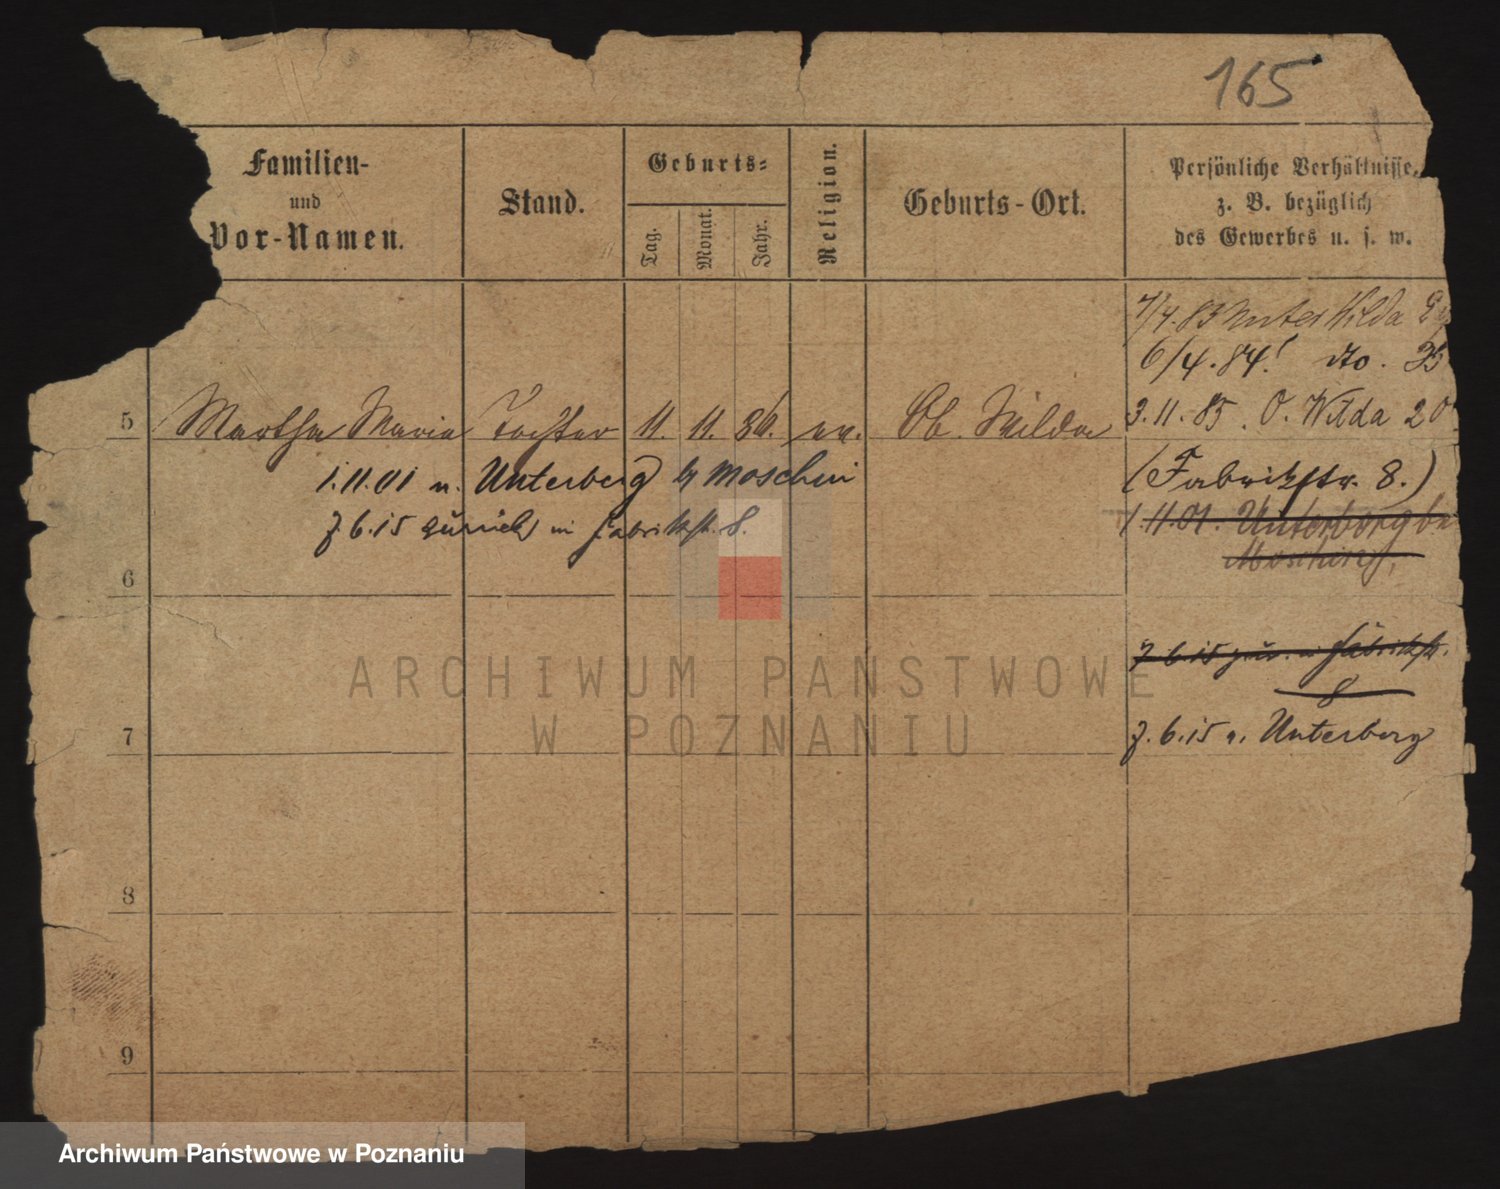 165
Familien-
und
Vor-Namen.
Stand.
Geburts-
Tag.
Monat.
Jahr.
Religion.
Geburts-Ort.
Persönliche Verhältnisse,
z. B. bezüglich
des Gewerbes u. s. w.
7/4.83 Unter Wilda
6/4.84. dto.
5 Martha Maria Tochter 11. 11. 86. ev. Ob. Wilda
3.11.85. O. Wilda 20
(Fabrikstr. 8.)
1.11.01 n. Unterberg b/ Moschin
1.11.01. Unterberg be
Moschin
7.6.15 zurück in Fabrikstr. 8.
6
7.6.15 zur. in Fabrikstr.
8
7
7.6.15 n. Unterberg
8
9
ARCHIWUM PAŃSTWOWE
W POZNANIU
Archiwum Państwowe w Poznaniu